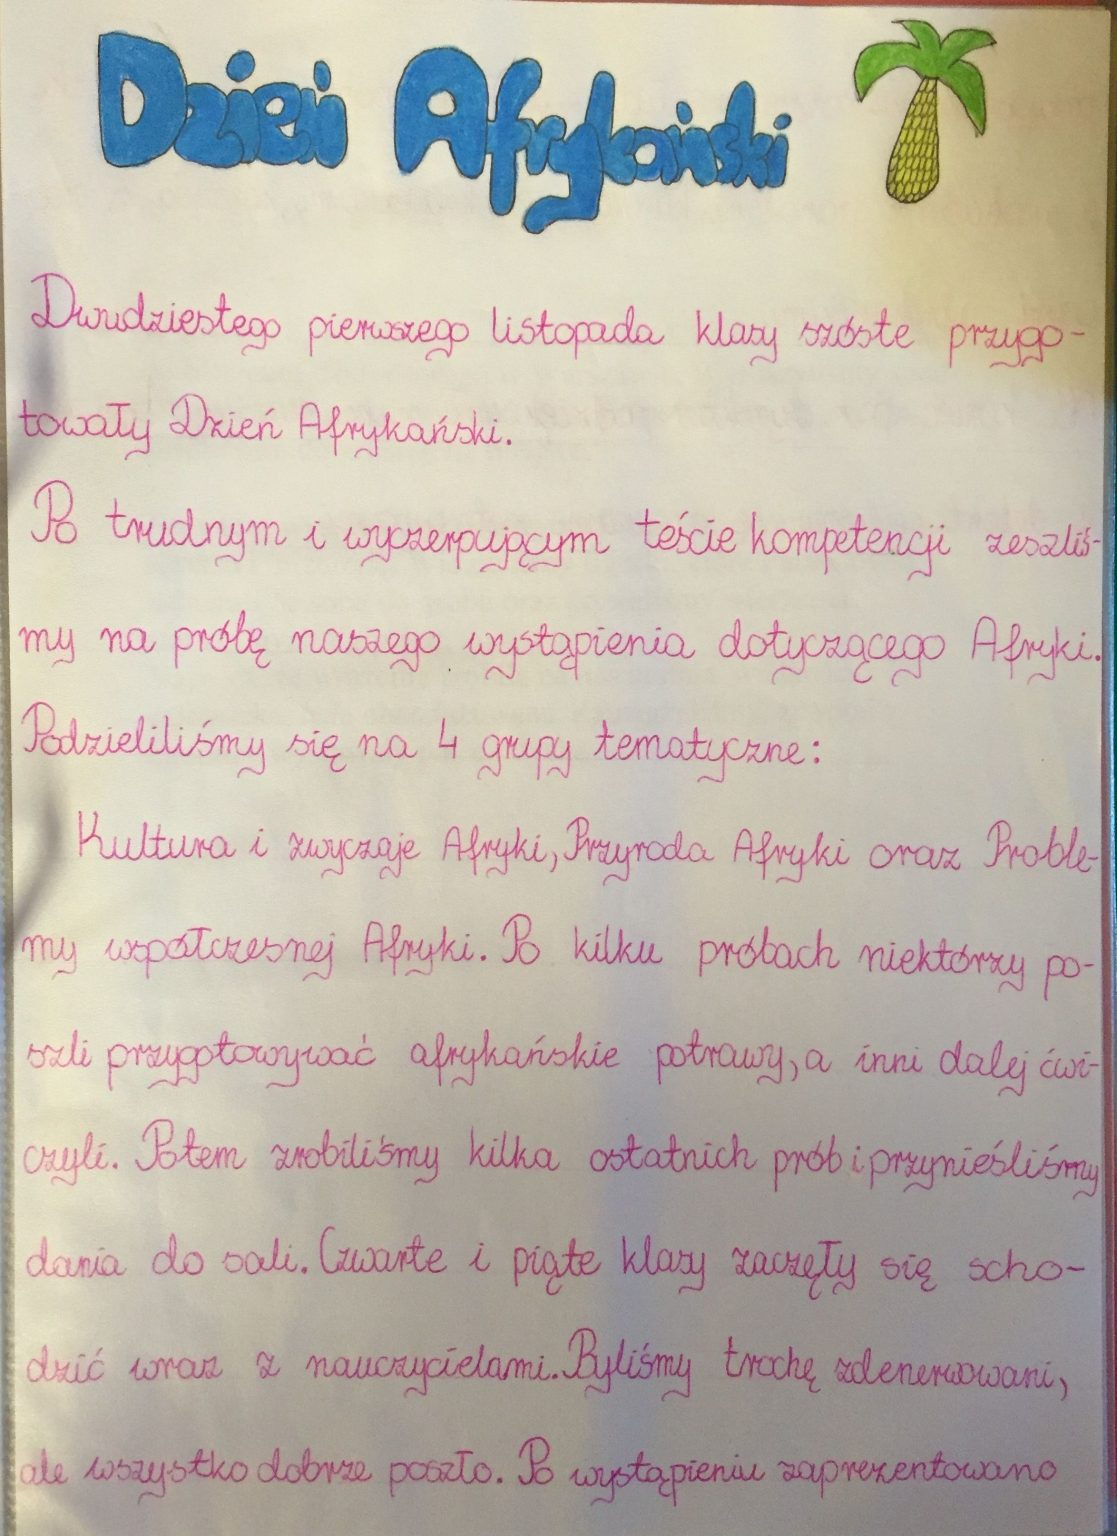 Dzień Afrykański
Dwudziestego pierwszego listopada klasy szóste przygo-
towały Dzień Afrykański.
Po trudnym i wyczerpującym teście kompetencji zeszliś-
my na próbę naszego wystąpienia dotyczącego Afryki.
Podzieliliśmy się na 4 grupy tematyczne:
Kultura i zwyczaje Afryki, Przyroda Afryki oraz Proble-
my współczesnej Afryki. Po kilku próbach niektórzy po-
szli przygotowywać afrykańskie potrawy, a inni dalej ćwi-
czyli. Potem zrobiliśmy kilka ostatnich prób i przynieśliśmy
dania do sali. Czwarte i piąte klasy zaczęły się scho-
dzić wraz z nauczycielami. Byliśmy trochę zdenerwowani,
ale wszystko dobrze poszło. Po wystąpieniu zaprezentowano